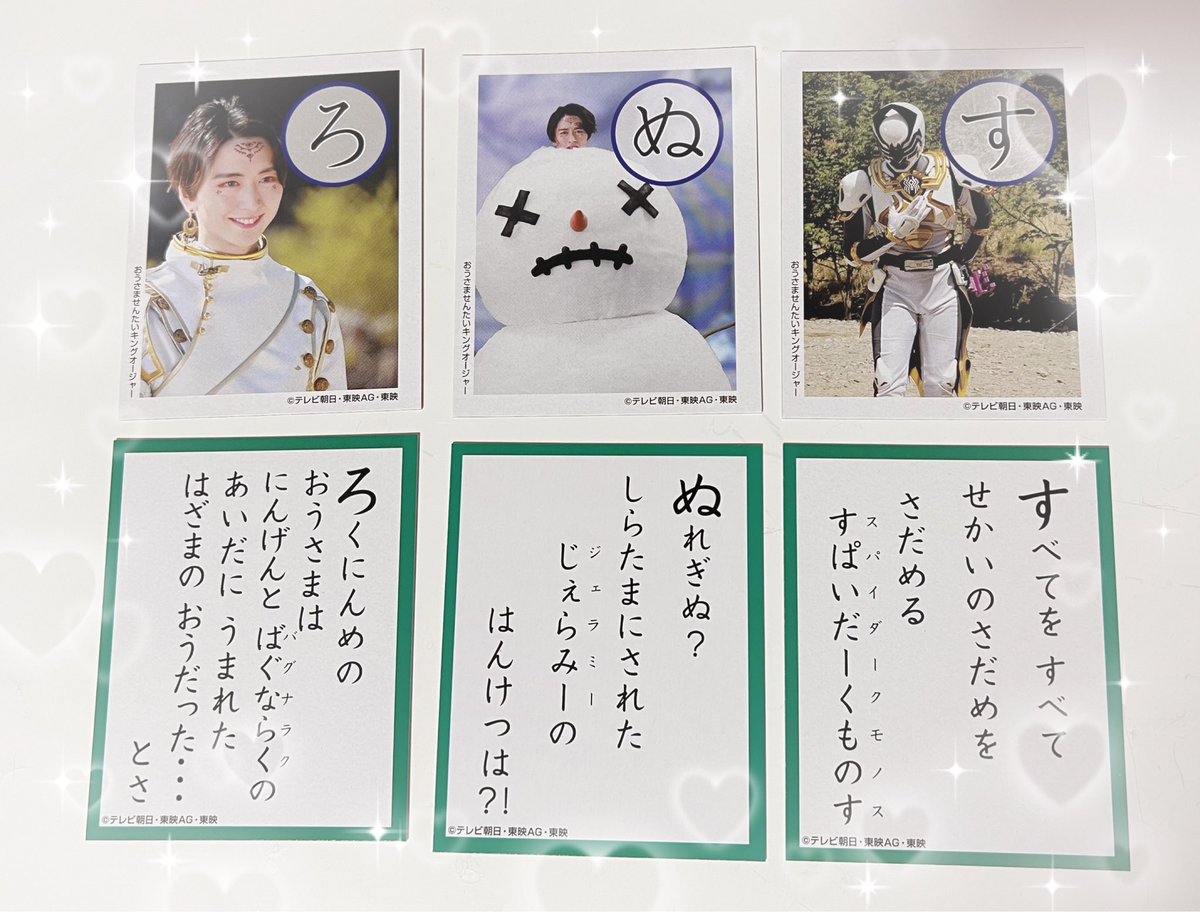 ろ
おうさませんたいキングオージャー
©テレビ朝日・東映AG・東映
ぬ
おうさませんたいキングオージャー
©テレビ朝日・東映AG・東映
す
おうさませんたいキングオージャー
©テレビ朝日・東映AG・東映
ろくにんめの
おうさまは
にんげんと ばぐならくの
バグナラク
あいだに うまれた
はざまの おうだった・・・
とさ
©テレビ朝日・東映AG・東映
ぬれぎぬ?
しらたまにされた
じぇらみーの
ジェラミー
はんけつは?!
©テレビ朝日・東映AG・東映
すべてを すべて
せかいのさだめを
さだめる
すぱいだーくものす
スパイダークモノス
©テレビ朝日・東映AG・東映